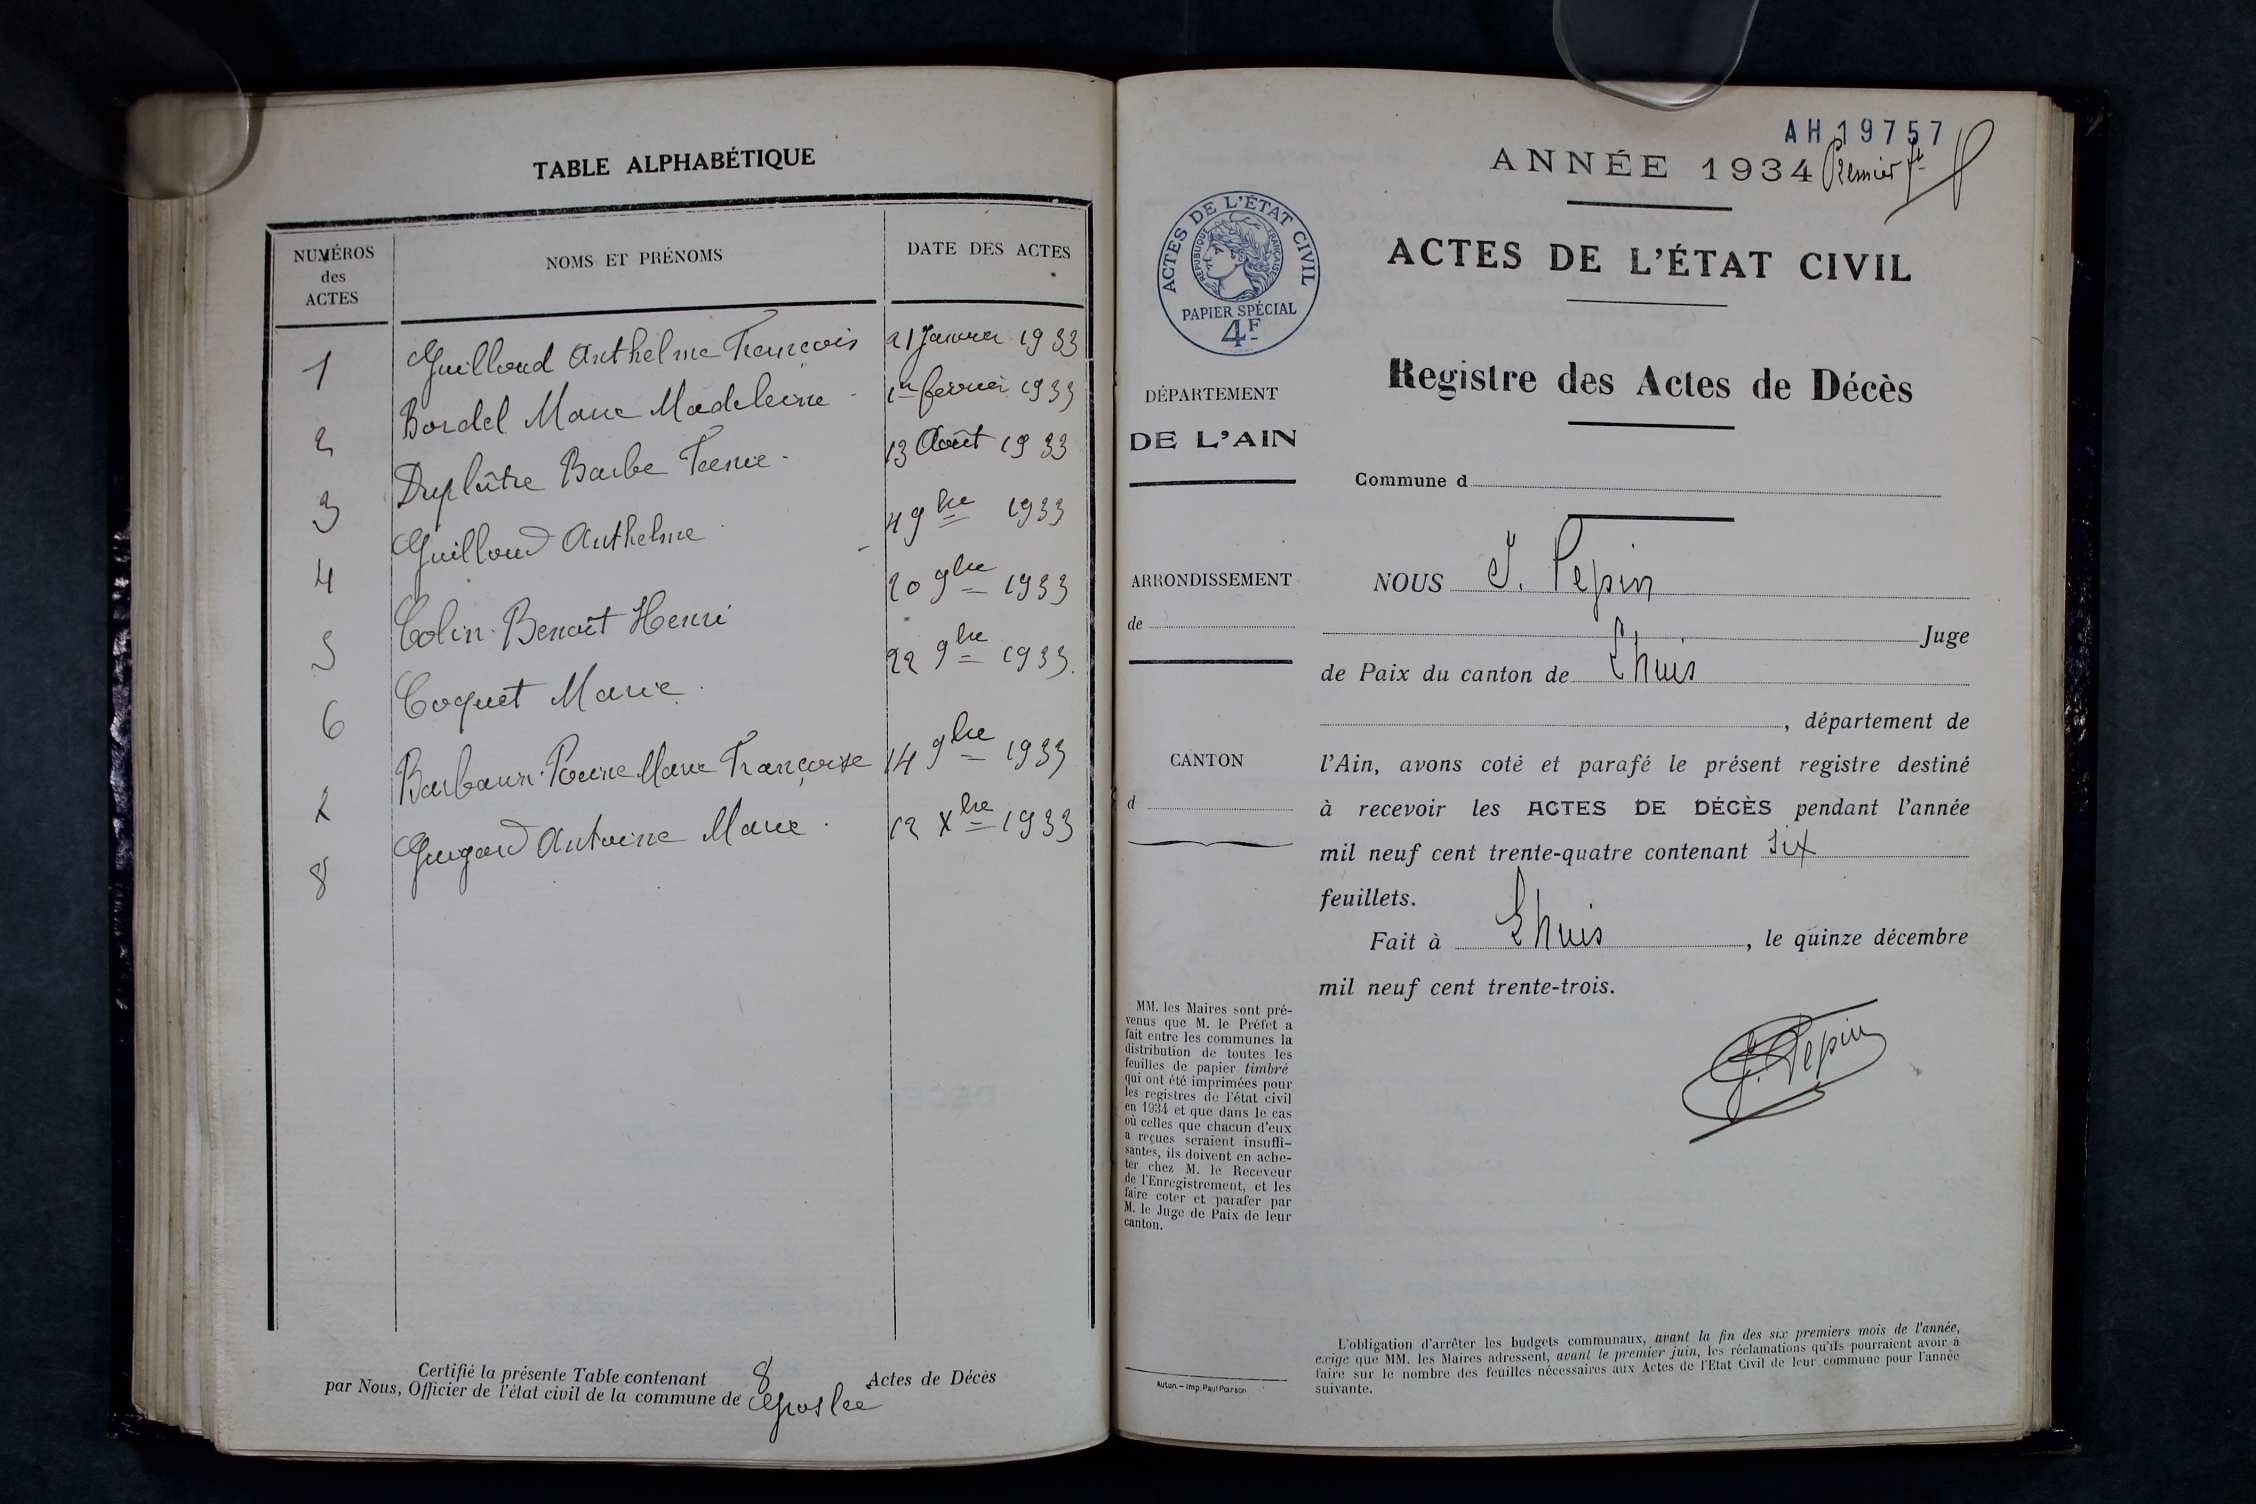 TABLE ALPHABÉTIQUE
NUMÉROS
des
ACTES
NOMS ET PRÉNOMS
DATE DES ACTES
1 Guilloud Anthelme François 21 Janvier 1933
2 Bordel Marie Madeleine 1er février 1933
3 Duplâtre Barbe 13 Août 1933
4 Guilloud Anthelme 4 9bre 1933
5 Colin Benoît Henri 20 9bre 1933
6 Coquet Marie 22 9bre 1933
Marie Françoise 14 9bre 1933
8 Guigard Antoine Marie 12 Xbre 1933
Certifié la présente Table contenant 8 Actes de Décès
par Nous, Officier de l'état civil de la commune de Groslée
AH19757
ANNÉE 1934 Premier ft
ACTES DE L'ÉTAT CIVIL
RÉPUBLIQUE FRANÇAISE
PAPIER SPÉCIAL
4F
ACTES DE L'ÉTAT CIVIL
Registre des Actes de Décès
DÉPARTEMENT
DE L'AIN
Commune d
ARRONDISSEMENT
de
CANTON
d
NOUS J. Pepin
Juge
de Paix du canton de Lhuis
, département de
l'Ain, avons coté et parafé le présent registre destiné
à recevoir les ACTES DE DÉCÈS pendant l'année
mil neuf cent trente-quatre contenant six
feuillets.
Fait à Lhuis, le quinze décembre
mil neuf cent trente-trois.
J. Pepin
MM. les Maires sont pré-
venus que M. le Préfet a
fait entre les communes la
distribution de toutes les
feuilles de papier timbré
qui ont été imprimées pour
les registres de l'état civil
en 1934 et que dans le cas
où celles que chacun d'eux
a reçues seraient insuffi-
santes, ils doivent en ache-
ter chez M. le Receveur
de l'Enregistrement, et les
faire coter et parafer par
M. le Juge de Paix de leur
canton.
Autun. — Imp. Paul Poirson
L'obligation d'arrêter les budgets communaux, avant la fin des six premiers mois de l'année,
exige que MM. les Maires adressent, avant le premier juin, les réclamations qu'ils pourraient avoir à
faire sur le nombre des feuilles nécessaires aux Actes de l'Etat Civil de leur commune pour l'année
suivante.